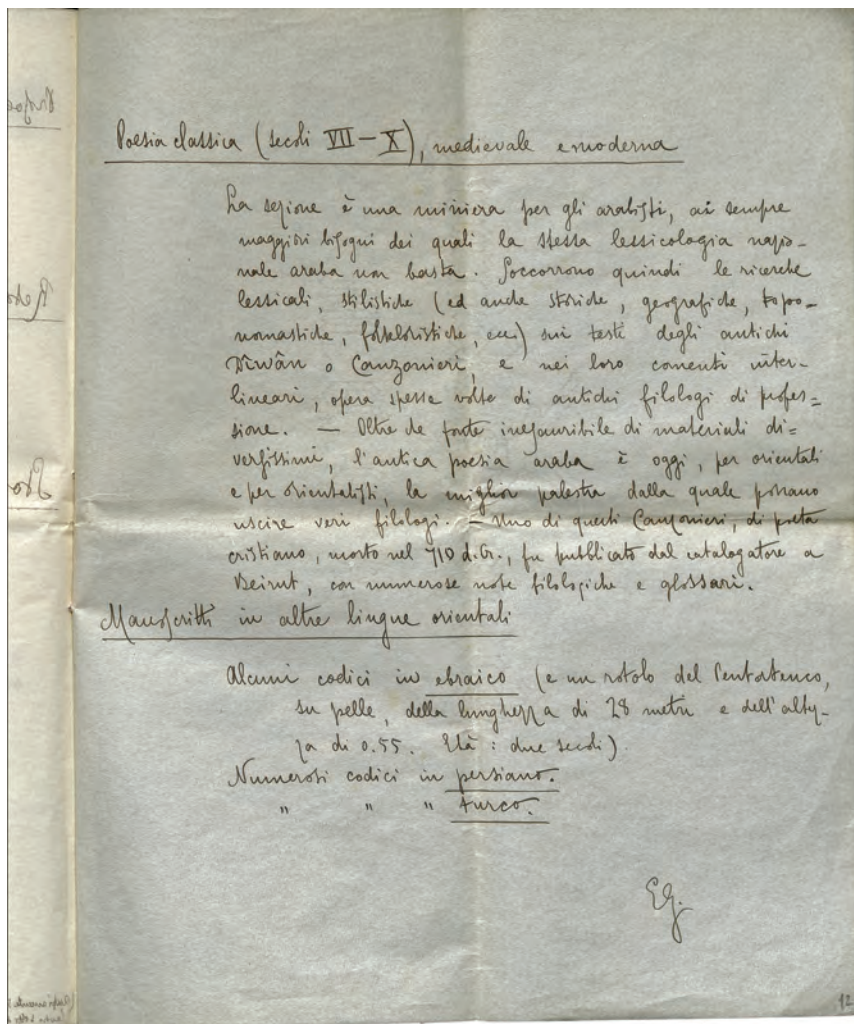 Poesia classica (secoli VII – X), medievale e moderna
La sezione è una miniera per gli arabisti, ai sempre
maggiori bisogni dei quali la stessa lessicologia nazio-
nale araba non basta. Soccorrono quindi le ricerche
lessicali, stilistiche (ed anche storiche, geografiche, topo-
nomastiche, folkloristiche, ecc.) sui testi degli antichi
Dîwân o Canzonieri, e nei loro comenti inter-
lineari, opera spesse volte di antichi filologi di profes=
sione. — Oltre che fonte inesauribile di materiali di=
versissimi, l'antica poesia araba è oggi, per orientali
e per orientalisti, la miglior palestra dalla quale possano
uscire veri filologi. — Uno di questi Canzonieri, di poeta
cristiano, morto nel 710 d. Cr., fu pubblicato dal catalogatore a
Beirut, con numerose note filologiche e glossari.
Manoscritti in altre lingue orientali
Alcuni codici in ebraico (e un rotolo del Pentateuco,
su pelle, della lunghezza di 28 metri e dell'altez-
za di 0.55. Età : due secoli).
Numerosi codici in persiano.
" " " turco.
EG.
12